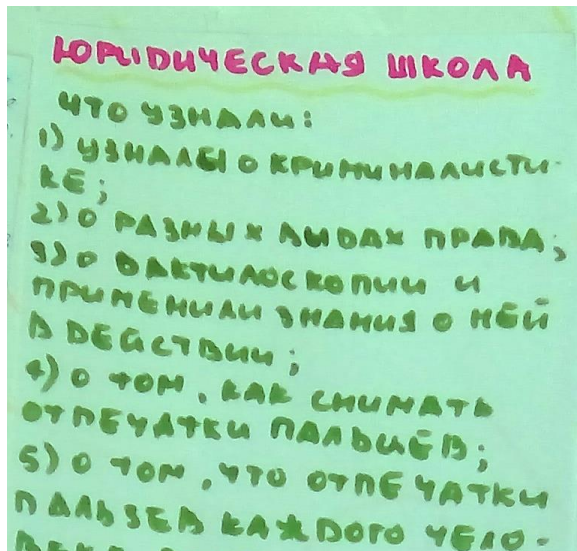 ЮРИДИЧЕСКАЯ ШКОЛА
ЧТО УЗНАЛИ:
1) УЗНАЛИ О КРИМИНАЛИСТИ-
КЕ;
2) О РАЗНЫХ ВИДАХ ПРАВА;
3) О ДАКТИЛОСКОПИИ И
ПРИМЕНИЛИ ЗНАНИЯ О НЕЙ
В ДЕЙСТВИИ;
4) О ТОМ, КАК СНИМАТЬ
ОТПЕЧАТКИ ПАЛЬЦЕВ;
5) О ТОМ, ЧТО ОТПЕЧАТКИ
ПАЛЬЗЕВ КАЖДОГО ЧЕЛО-